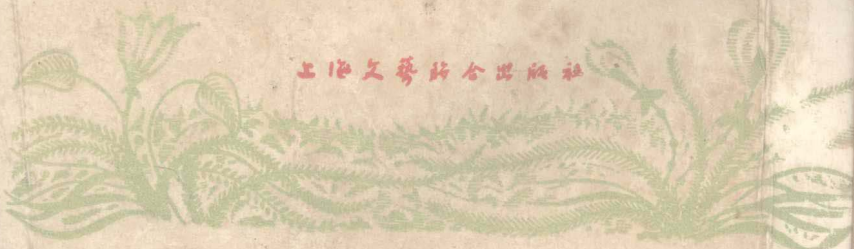 上海文藝聯合出版社